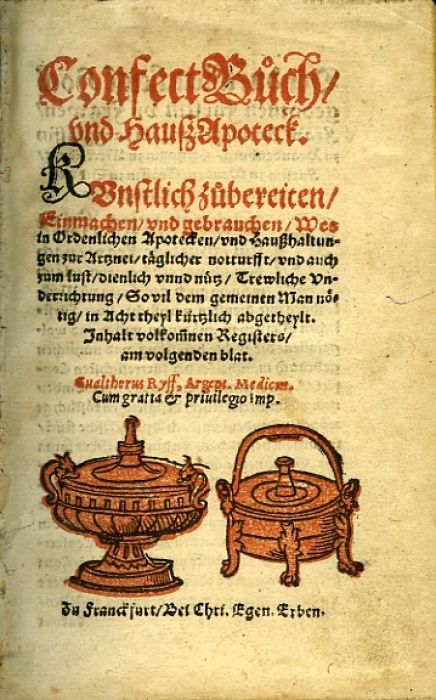 Confect Bůch/
vnd Hauß Apoteck.
KVnstlich zůbereiten/
Einmachen/ vnd gebrauchen/ Wes
in Ordenlichen Apotecken/ vnd Haußhaltun-
gen zur Artznei/ täglicher notturfft/ vnd auch
zum lust/ dienlich vnnd nütz/ Trewliche Vn-
derrichtung/ So vil dem gemeinen Man nö-
tig/ in Acht theyl kürtzlich abgetheylt.
Inhalt volkom̃nen Registers/
am volgenden blat.
Gualtherus Ryff, Argent. Medicus.
Cum gratia & priuilegio imp.
Zu Franckfurt/ Bei Chri. Egen. Erben.